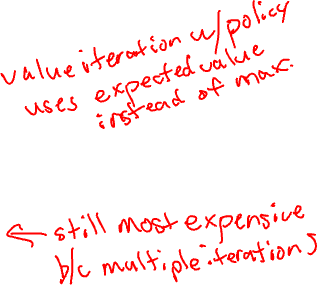 value iteration w/policy
uses expected value
instead of max.
← still most expensive
b/c multiple iterations